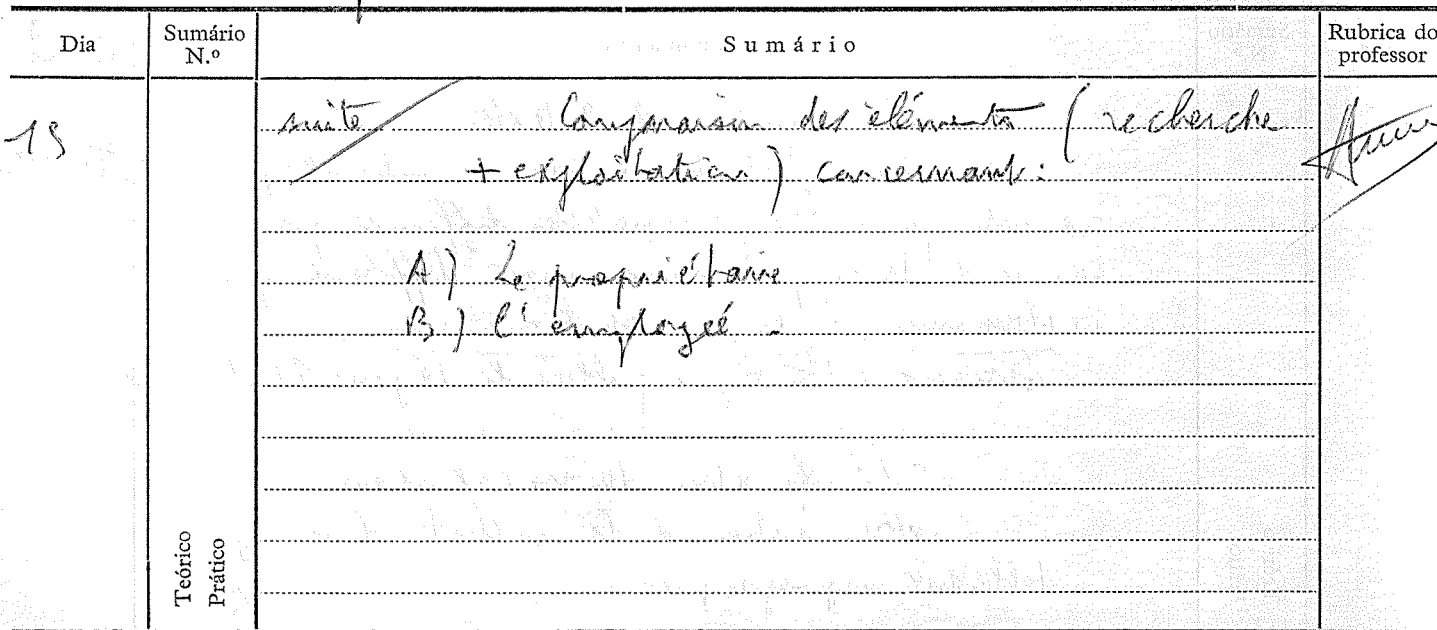 Dia Sumário N.º Sumário Rubrica do professor
19 suite Comparaison des éléments (recherche
+ exploitation) concernant:
A) Le propriétaire
B) l'employé.
Teórico
Prático